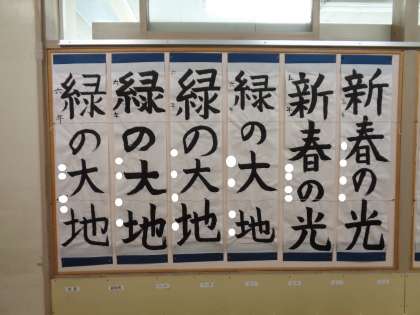 新春の光
新春の光
緑の大地
緑の大地
緑の大地
緑の大地
六年